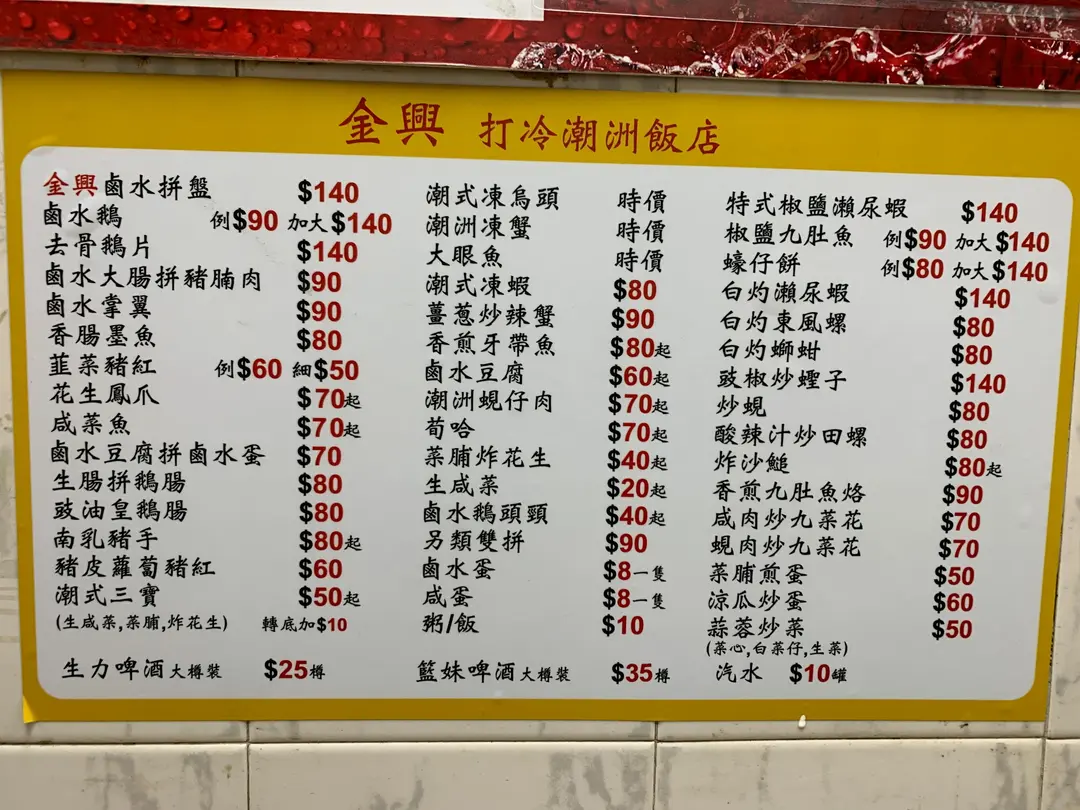 金興 打冷潮洲飯店
金興鹵水拼盤 $140
鹵水鵝 例$90 加大$140
去骨鵝片 $140
鹵水大腸拼豬腩肉 $90
鹵水掌翼 $90
香腸墨魚 $80
韮菜豬紅 例$60 細$50
花生鳳爪 $70起
咸菜魚 $70起
鹵水豆腐拼鹵水蛋 $70
生腸拼鵝腸 $80
豉油皇鵝腸 $80
南乳豬手 $80起
豬皮蘿蔔豬紅 $60
潮式三寶 $50起
(生咸菜,菜脯,炸花生) 轉底加$10
生力啤酒大樽裝 $25樽
潮式凍烏頭 時價
潮洲凍蟹 時價
大眼魚 時價
潮式凍蝦 $80
薑蔥炒辣蟹 $90
香煎牙帶魚 $80起
鹵水豆腐 $60起
潮洲蜆仔肉 $70起
荀哈 $70起
菜脯炸花生 $40起
生咸菜 $20起
鹵水鵝頭頸 $40起
另類雙拼 $90
鹵水蛋 $8一隻
咸蛋 $8一隻
粥/飯 $10
籃妹啤酒大樽裝 $35樽
特式椒鹽瀨尿蝦 $140
椒鹽九肚魚 例$90 加大$140
蠔仔餅 例$80 加大$140
白灼瀨尿蝦 $140
白灼東風螺 $80
白灼螄蚶 $80
豉椒炒蟶子 $140
炒蜆 $80
酸辣汁炒田螺 $80
炸沙鯭 $80起
香煎九肚魚烙 $90
咸肉炒九菜花 $70
蜆肉炒九菜花 $70
菜脯煎蛋 $50
涼瓜炒蛋 $60
蒜蓉炒菜 $50
(菜心,白菜仔,生菜)
汽水 $10罐